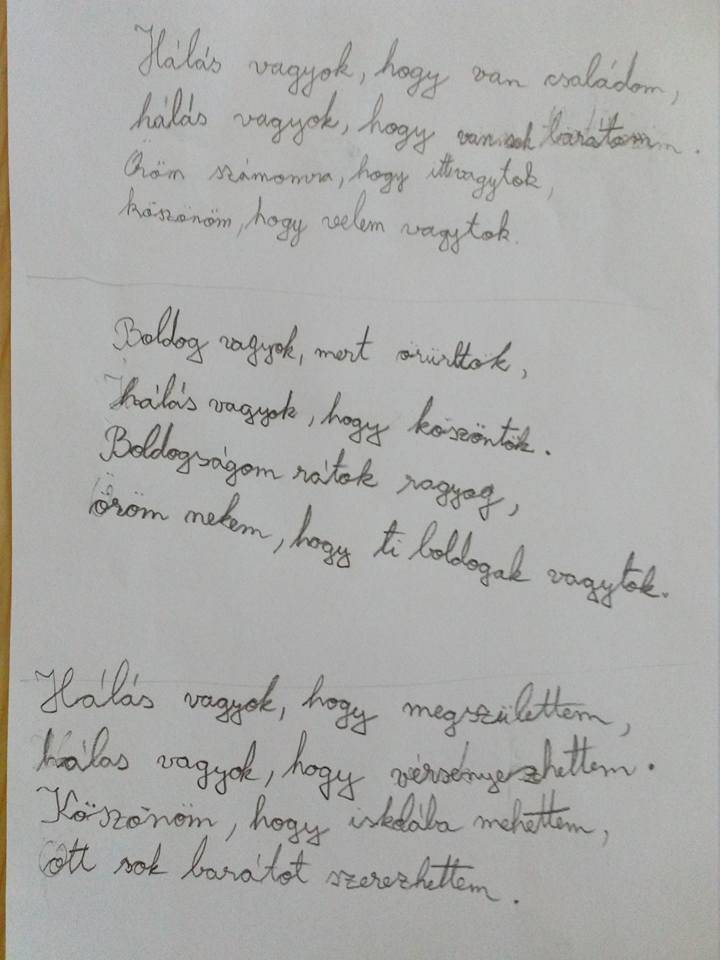 Hálás vagyok, hogy van családom,
hálás vagyok, hogy van sok barátom.
Öröm számomra, hogy itt vagytok,
köszönöm, hogy velem vagytok.
Boldog vagyok, mert örültök,
hálás vagyok, hogy köszöntök.
Boldogságom rátok ragyog,
öröm nekem, hogy ti boldogak vagytok.
Hálás vagyok, hogy megszülettem,
hálas vagyok, hogy vérsenyezhettem.
Köszönöm, hogy iskolába mehettem,
ott sok barátot szerezhettem.